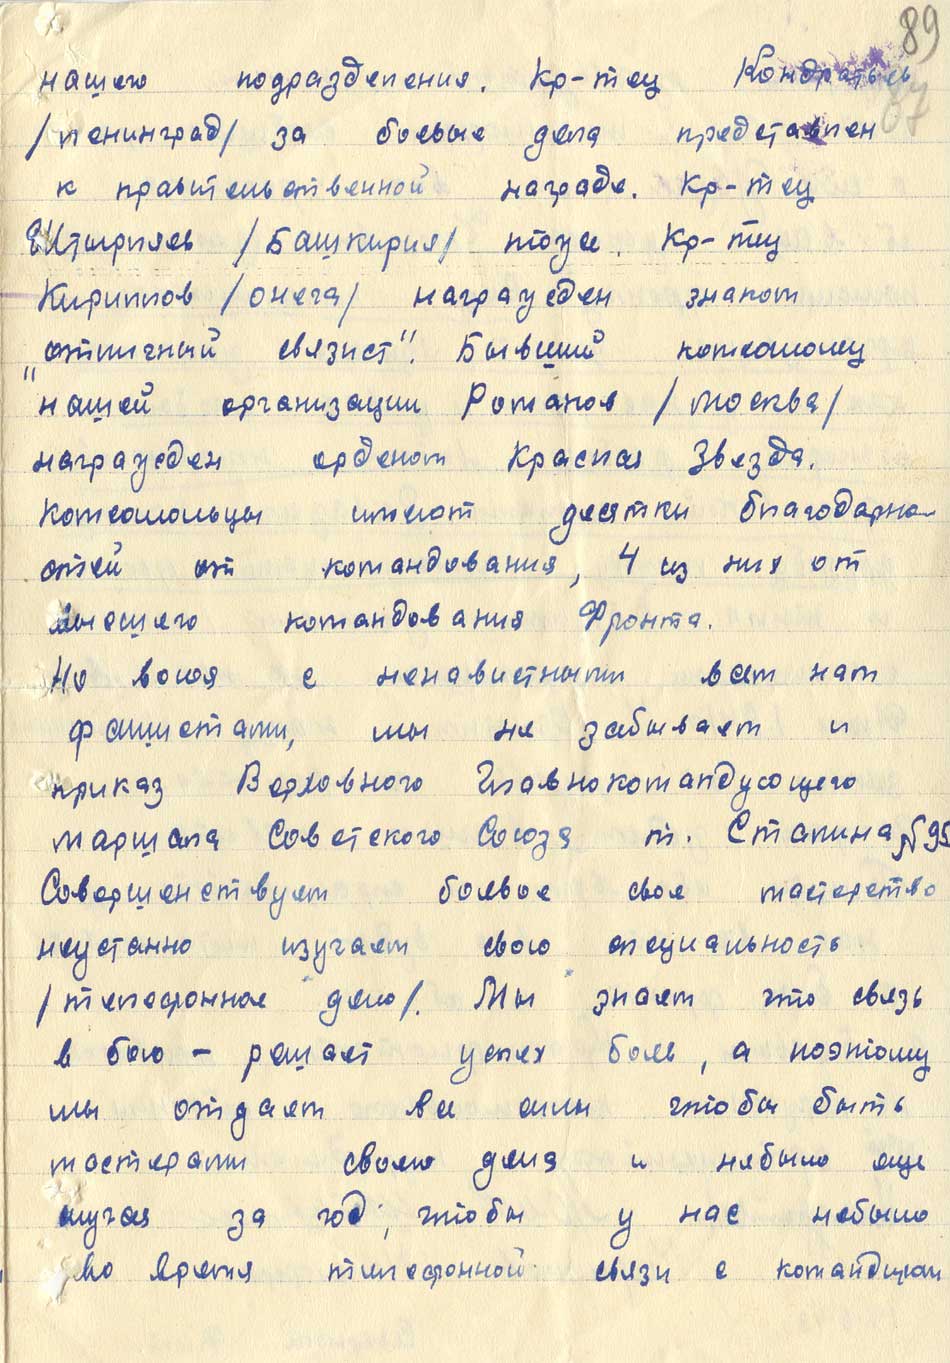 89
87
нашего подразделения. Кр-мец Кондратьев
/Ленинград/ за боевые дела представлен
к правительственной награде. Кр-мец
/Башкирия/ тоже. Кр-мец
Кириллов /Онега/ награжден знаком
„отличный связист". Бывший комсомолец
нашей организации Романов /Москва/
награжден орденом Красная Звезда.
Комсомольцы имеют десятки благодарно-
стей от командования, 4 из них от
высшего командования Фронта.
Но воюя с ненавистными всем нам
фашистами, мы не забываем и
приказ Верховного Главнокомандующего
маршала Советского Союза т. Сталина №95
Совершенствуем боевое свое мастерство
неустанно изучаем свою специальность
/телефонное дело/. Мы знаем что связь
в бою - решает успех боя, а поэтому
мы отдаем все силы чтобы быть
мастерами своего дела и небыло еще
случая за год, чтобы у нас небыло
во время телефонной связи с командиром